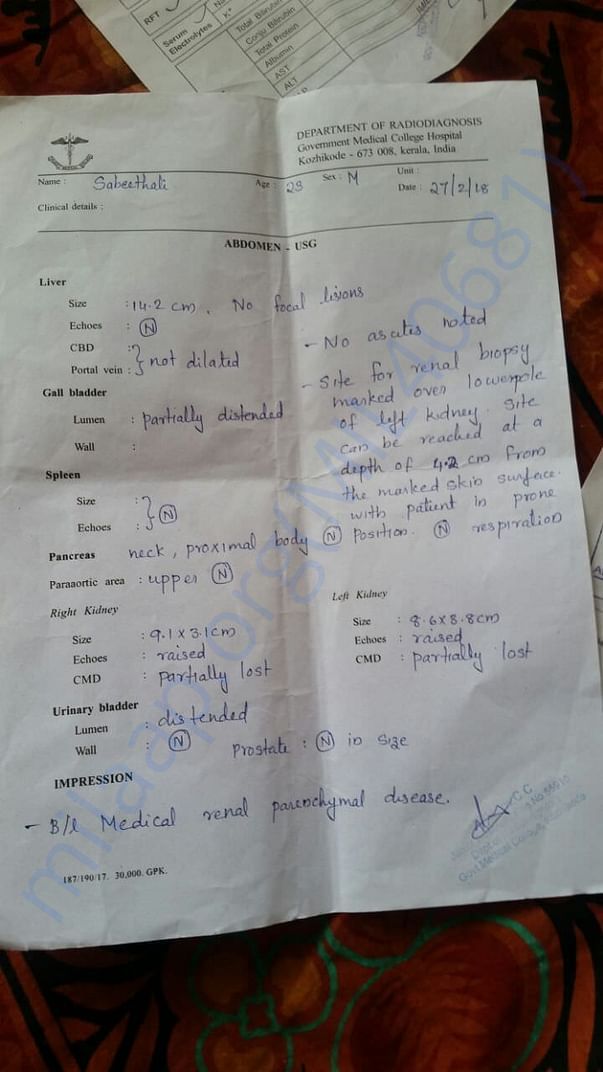 RFT
Serum
Electrolytes
K+
Total Bilirubin
Conju Bilirubin
Total Protein
Albumin
AST
ALT
DEPARTMENT OF RADIODIAGNOSIS
Government Medical College Hospital
Kozhikode - 673 008, kerala, India
Name : Sabeethali Age : 23 Sex : M Unit :
Date : 27/2/18
Clinical details :
ABDOMEN - USG
Liver
Size : 14.2 cm. No focal lisions
Echoes : (N)
CBD :
Portal vein : } not dilated
- No ascites noted
Gall bladder
Lumen : partially distended
Wall :
- Site for renal biopsy
marked over lowerpole
of left kidney. Site
can be reached at a
depth of 4.2 cm from
the marked skin surface.
with patient in prone
position. (N) respiration
Spleen
Size :
Echoes : } (N)
Pancreas neck, proximal body (N)
Paraaortic area : upper (N)
Right Kidney
Size : 9.1 x 3.1cm
Echoes : raised
CMD : partially lost
Left Kidney
Size : 8.6x8.8cm
Echoes : raised
CMD : partially lost
Urinary bladder
Lumen : distended
Wall : (N) prostate : (N) in size
IMPRESSION
- B/l Medical renal parenchymal disease.
187/190/17. 30,000. GPK.
milaap.org(MIL240681)